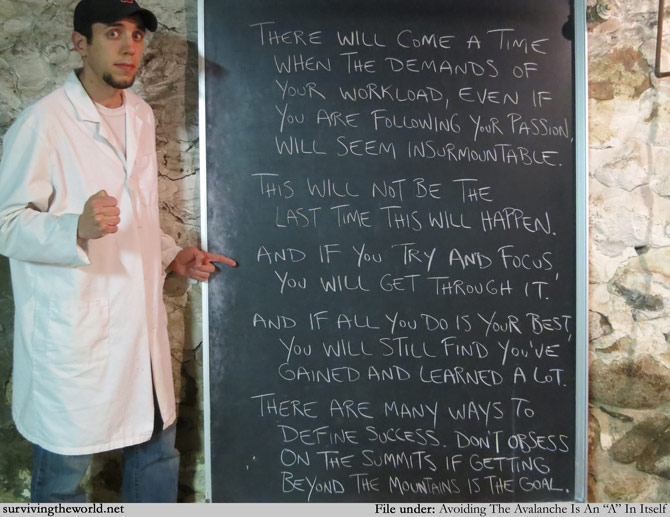 THERE WILL COME A TIME
WHEN THE DEMANDS OF
YOUR WORKLOAD, EVEN IF
YOU ARE FOLLOWING YOUR PASSION,
WILL SEEM INSURMOUNTABLE.
THIS WILL NOT BE THE
LAST TIME THIS WILL HAPPEN.
AND IF YOU TRY AND FOCUS,
YOU WILL GET THROUGH IT.
AND IF ALL YOU DO IS YOUR BEST,
YOU WILL STILL FIND YOU'VE
GAINED AND LEARNED A LOT.
THERE ARE MANY WAYS TO
DEFINE SUCCESS. DON'T OBSESS
ON THE SUMMITS IF GETTING
BEYOND THE MOUNTAINS IS THE GOAL.
survivingtheworld.net
File under: Avoiding The Avalanche Is An “A” In Itself